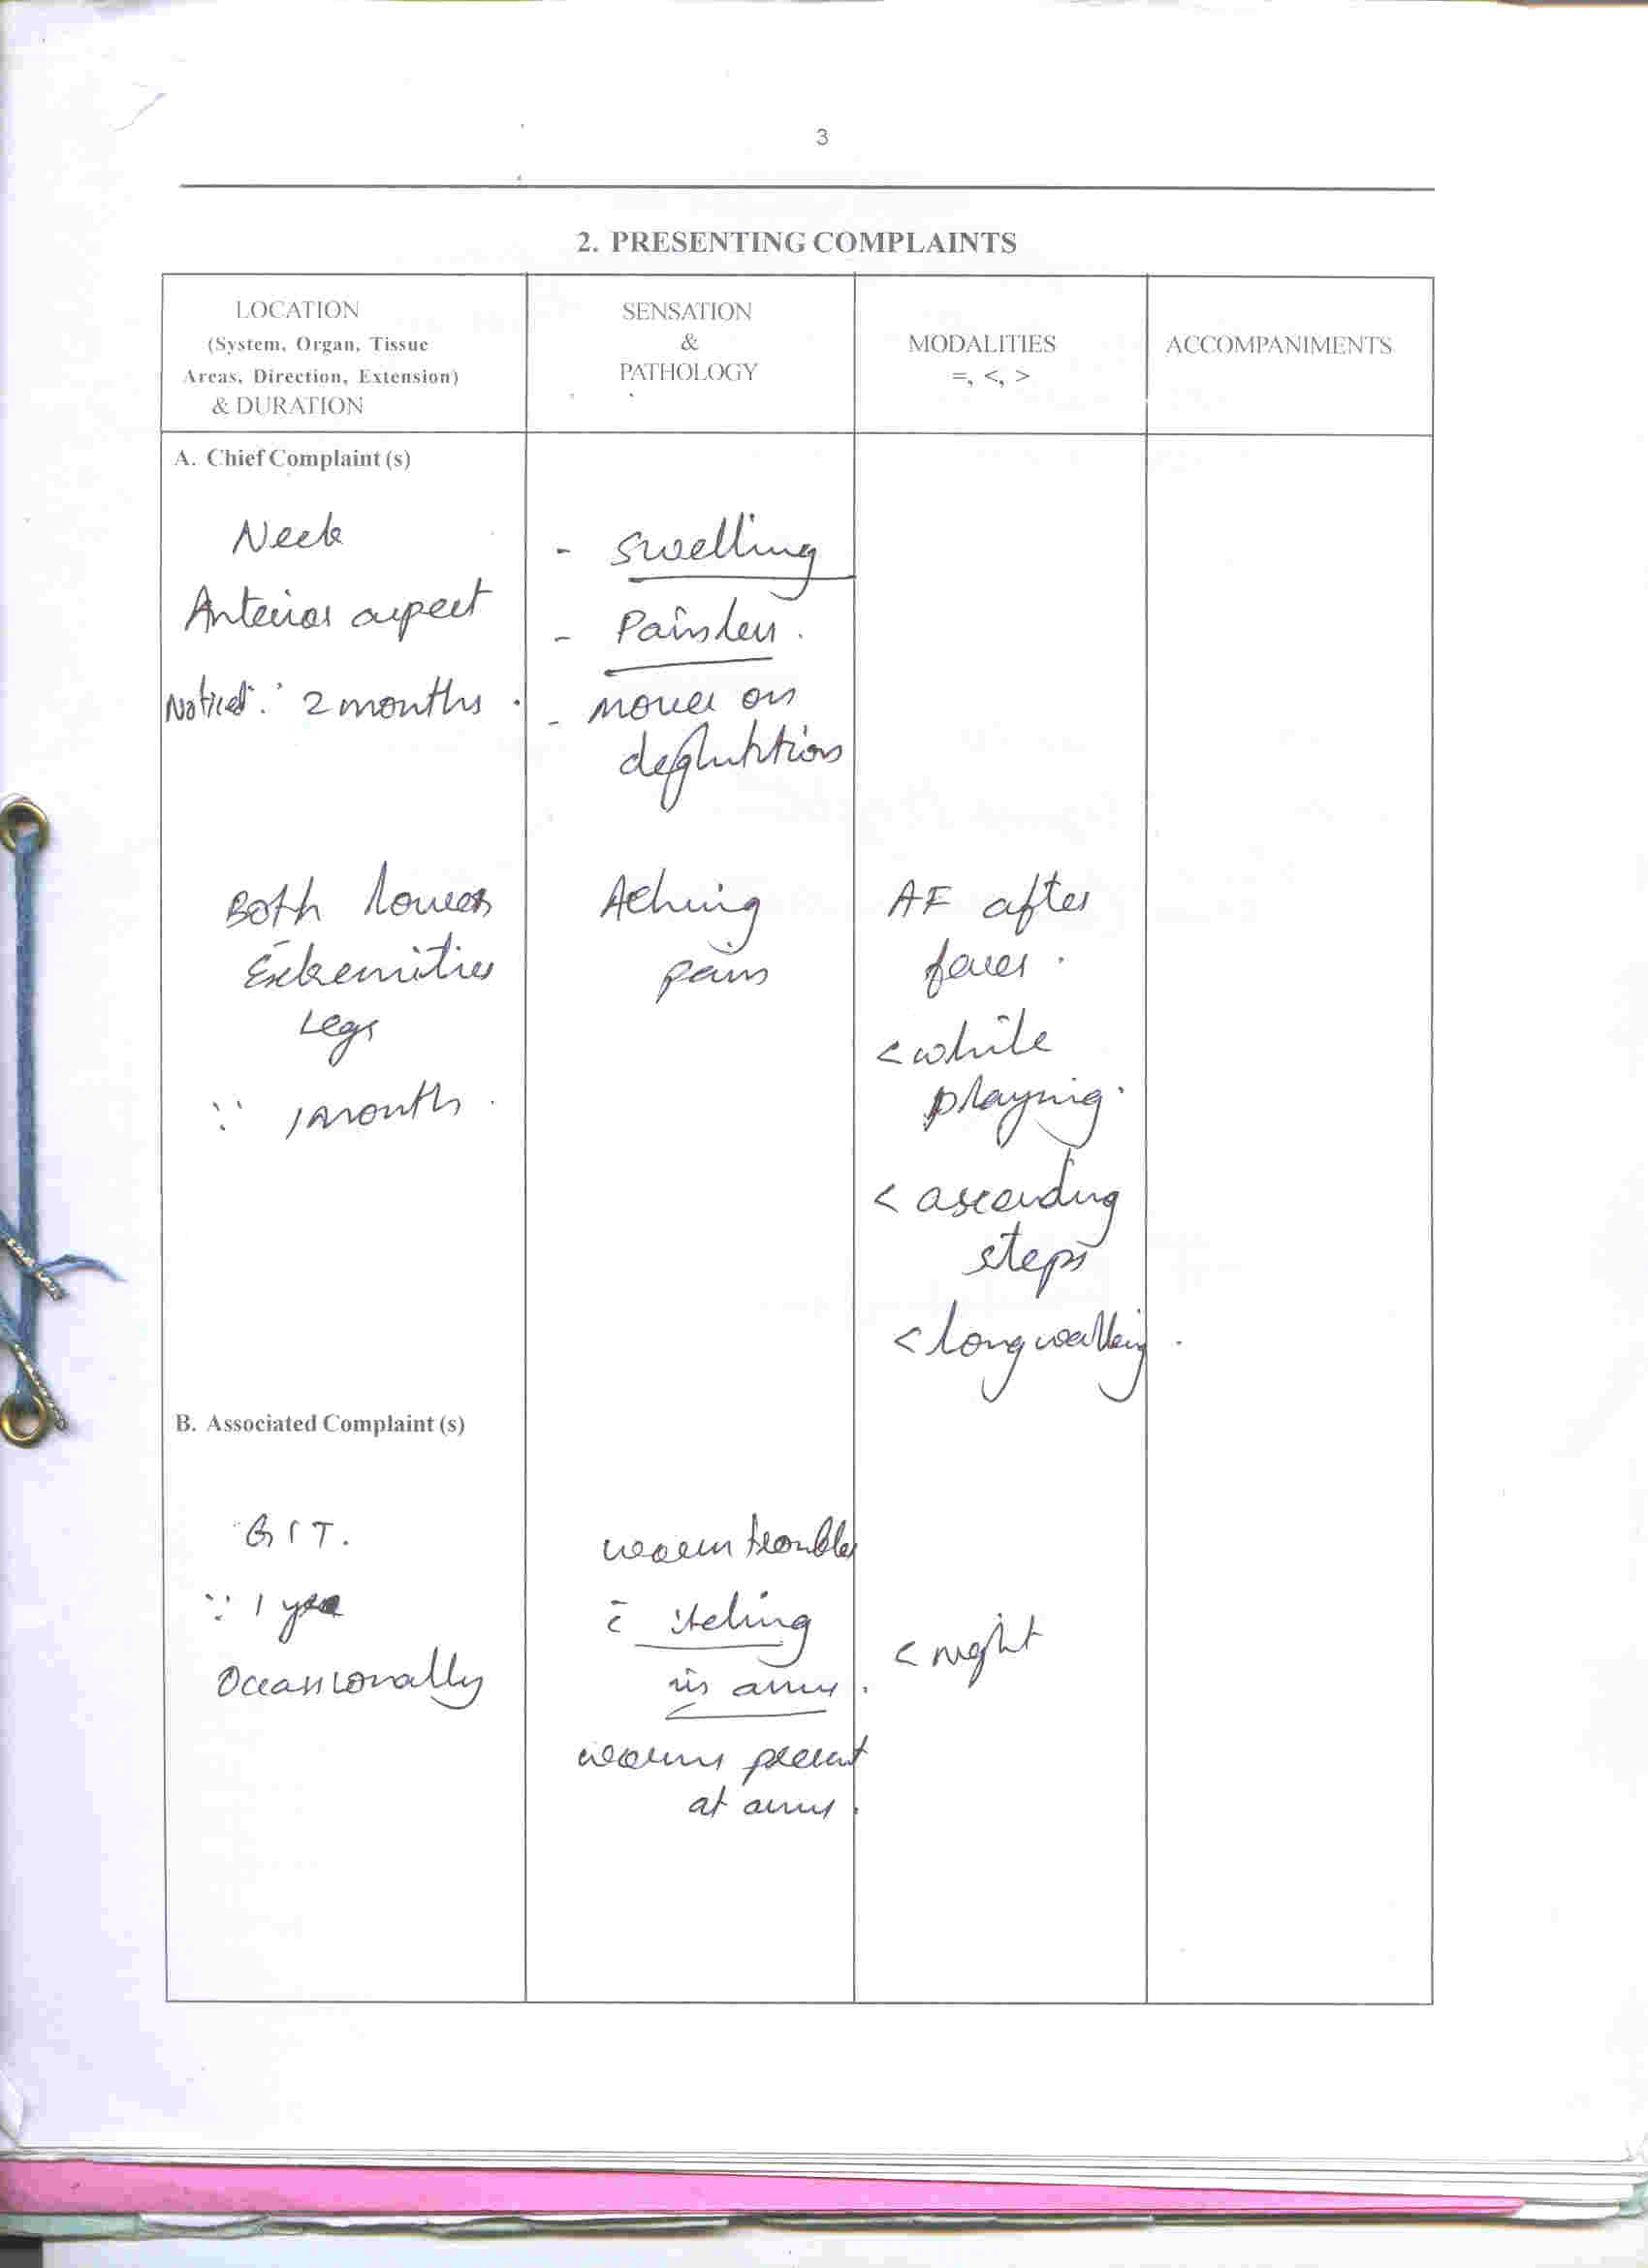 3
2. PRESENTING COMPLAINTS
LOCATION
(System, Organ, Tissue
Areas, Direction, Extension)
& DURATION
SENSATION
&
PATHOLOGY
MODALITIES
=, <, >
ACCOMPANIMENTS
A. Chief Complaint (s)
Neck
Anterior aspect
Noticed ∵ 2 months.
- swelling
- Painless.
- moves on
deglutition
Both lower
Extremities
Legs
∵ 1 month.
Aching
pain
AF after
fever.
< while
playing.
< ascending
steps
< long walking.
B. Associated Complaint (s)
GIT.
∵ 1 year
Occassionally
worm troubles
c̄ itching
in anus.
worms present
at anus.
< night